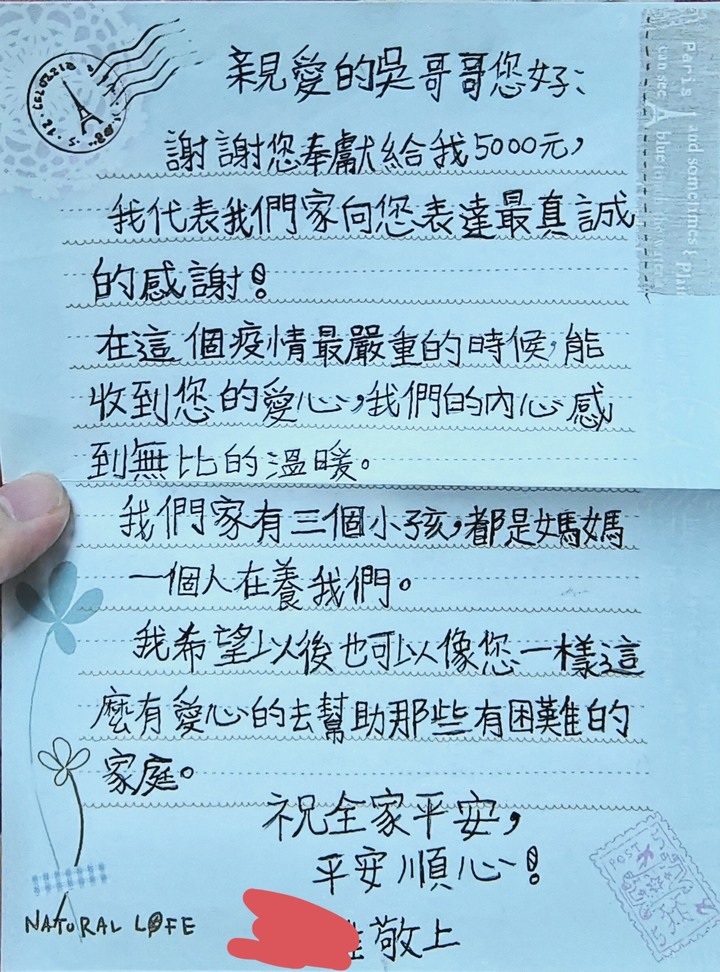 親愛的吳哥哥您好：
謝謝您奉獻給我5000元，
我代表我們家向您表達最真誠
的感謝！
在這個疫情最嚴重的時候，能
收到您的愛心，我們的內心感
到無比的溫暖。
我們家有三個小孩，都是媽媽
一個人在養我們。
我希望以後也可以像您一樣這
麼有愛心的去幫助那些有困難的
家庭。
祝全家平安，
平安順心！
敬上
NATURAL LIFE
Paris
and sometimes I
can see
blue
POST